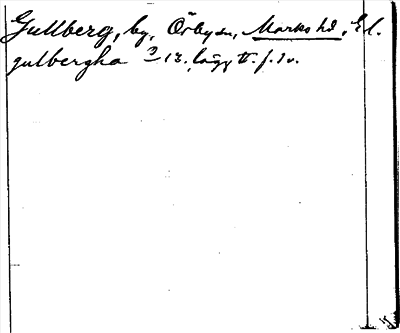 Gullberg, by, Örby sn, Marks hd, Äl.
gulbergha 3/12. lägg tt. f. 2 v.